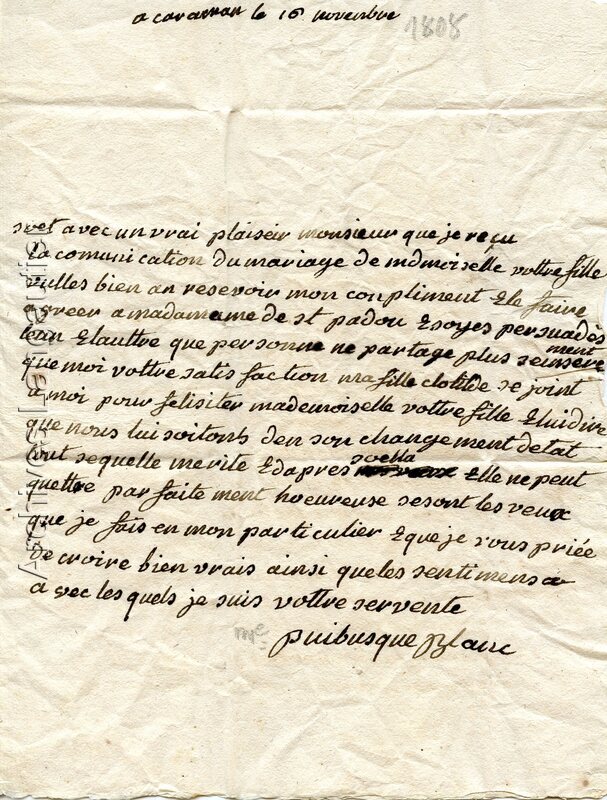 a caraman le 16 novembre 1808
svet avec un vrai plaiseir monsieur que je reçu
la comunication du mariage de mdmoiselle vottre fille
vulles bien an resevoir mon conpliment & le faire
agreer a madamame de st padou & soyes persuadès
lean & lauttre que personne ne partage plus seinsere
ment
que moi vottre satis faction ma fille clotilde se joint
a moi pour felisiter mademoiselle vottre fille & lui dire
que nous lui soitons den son change ment detat
tout sequelle merite & dapres soella elle ne peut
quettre par faite ment hoeureuse se sont les veux
que je fais en mon particulier & que je vous priée
de croire bien vrais ainsi queles sentimens a
a vec les quels je suis vottre servente
me puibusque Blanc